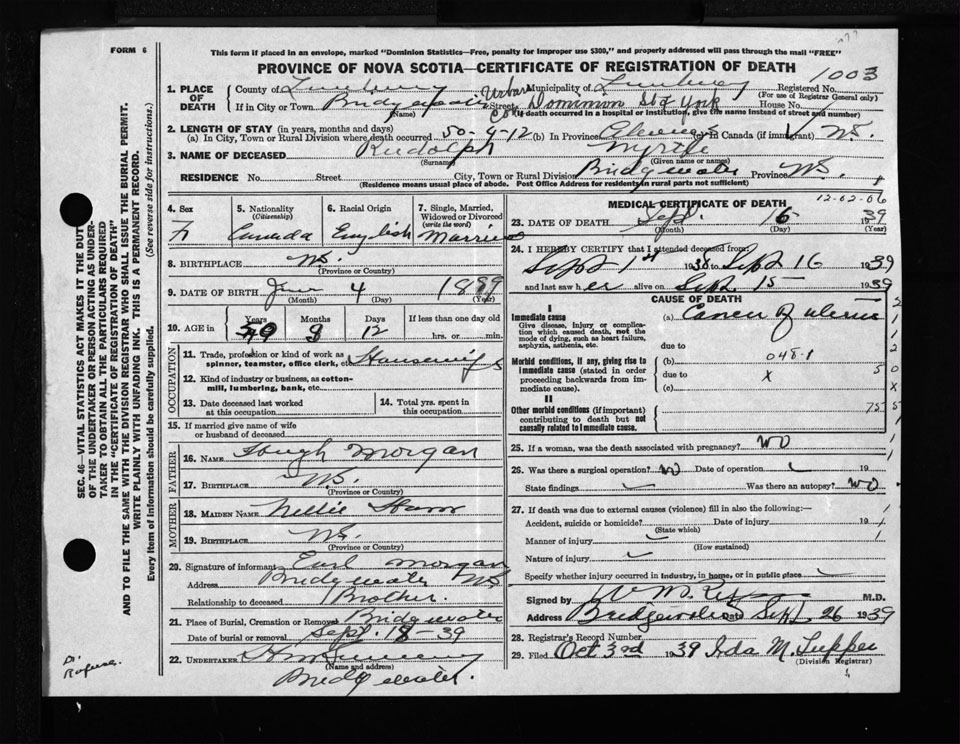 FORM 6
This form if placed in an envelope, marked "Dominion Statistics—Free, penalty for improper use $300," and properly addressed will pass through the mail "FREE"
PROVINCE OF NOVA SCOTIA—CERTIFICATE OF REGISTRATION OF DEATH
1003
1. PLACE OF DEATH
County of Lunenburg Municipality of Lunenburg Registered No.
(For use of Registrar General only)
If in City or Town Bridgewater Street Dominion St & York House No.
(Name) (If death occurred in a hospital or institution, give the name instead of street and number)
2. LENGTH OF STAY (in years, months and days)
(a) In City, Town or Rural Division where death occurred 50-9-12 (b) In Province (c) In Canada (if immigrant) N.S.
3. NAME OF DECEASED Rudolph Myrtle
(Surname) (Given name or names)
RESIDENCE No. Street City, Town or Rural Division Bridgewater Province N.S.
(Residence means usual place of abode. Post Office Address for residents in rural parts not sufficient)
4. Sex 5. Nationality (Citizenship) 6. Racial Origin 7. Single, Married, Widowed or Divorced (write the word)
F Canada English Married
8. BIRTHPLACE N.S.
(Province or Country)
9. DATE OF BIRTH June 4 1889
(Month) (Day) (Year)
10. AGE in Years Months Days If less than one day old
3 12 hrs. or min.
OCCUPATION
11. Trade, profession or kind of work as spinner, teamster, office clerk, etc. Housewife
12. Kind of industry or business, as cotton-mill, lumbering, bank, etc.
13. Date deceased last worked at this occupation
14. Total yrs. spent in this occupation
15. If married give name of wife or husband of deceased
FATHER
16. Name Hough Morgan
17. Birthplace N.S.
(Province or Country)
MOTHER
18. Maiden Name Nellie
19. Birthplace N.S.
(Province or Country)
20. Signature of informant Earl Morgan
Address Bridgewater NS
Relationship to deceased Brother.
21. Place of Burial, Cremation or Removal Bridgewater
Date of burial or removal Sept. 18-39
22. UNDERTAKER
(Name and address)
Bridgewater.
MEDICAL CERTIFICATE OF DEATH
12-02-06
23. DATE OF DEATH Sept. 16 1939
(Month) (Day) (Year)
24. I HEREBY CERTIFY that I attended deceased from
Sept 1st 1938 to Sept 16 1939
and last saw her alive on Sept 15 1939
CAUSE OF DEATH
I
Immediate cause
Give disease, injury or complication which caused death, not the mode of dying, such as heart failure, asphyxia, asthenia, etc.
(a) Cancer of uterus
due to
Morbid conditions, if any, giving rise to immediate cause (stated in order proceeding backwards from immediate cause).
(b) 048.1
due to X
(c)
II
Other morbid conditions (if important) contributing to death but not causally related to immediate cause.
25. If a woman, was the death associated with pregnancy? no
26. Was there a surgical operation? no Date of operation 19
State findings Was there an autopsy? no
27. If death was due to external causes (violence) fill in also the following:—
Accident, suicide or homicide? Date of injury 19
(State which)
Manner of injury
(How sustained)
Nature of injury
Specify whether injury occurred in industry, in home, or in public place
Signed by M.D.
Address Bridgewater Date Sept. 26 1939
28. Registrar's Record Number
29. Filed Oct 3rd 1939 Ida M. Tupper
(Division Registrar)
SEC. 46—VITAL STATISTICS ACT MAKES IT THE DUTY OF THE UNDERTAKER OR PERSON ACTING AS UNDERTAKER TO OBTAIN ALL THE PARTICULARS REQUIRED IN THE "CERTIFICATE OF REGISTRATION OF DEATH" AND TO FILE THE SAME WITH THE DIVISION REGISTRAR WHO SHALL ISSUE THE BURIAL PERMIT.
WRITE PLAINLY WITH UNFADING INK. THIS IS A PERMANENT RECORD.
Every item of information should be carefully supplied. (See reverse side for instructions.)